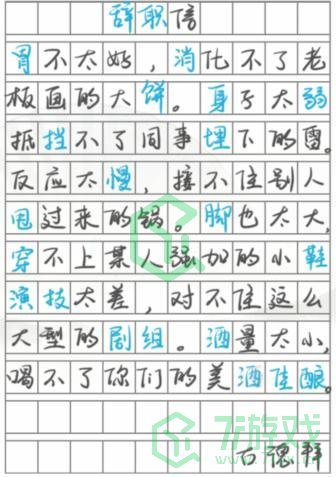 辞职信
胃不太好，消化不了老
板画的大饼。身子太弱
抵挡不了同事埋下的雷。
反应太慢，接不住别人
甩过来的锅。脚也太大，
穿不上某人强加的小鞋
演技太差，对不住这么
大型的剧组。酒量太小，
喝不了你们的美酒佳酿。
7k游戏